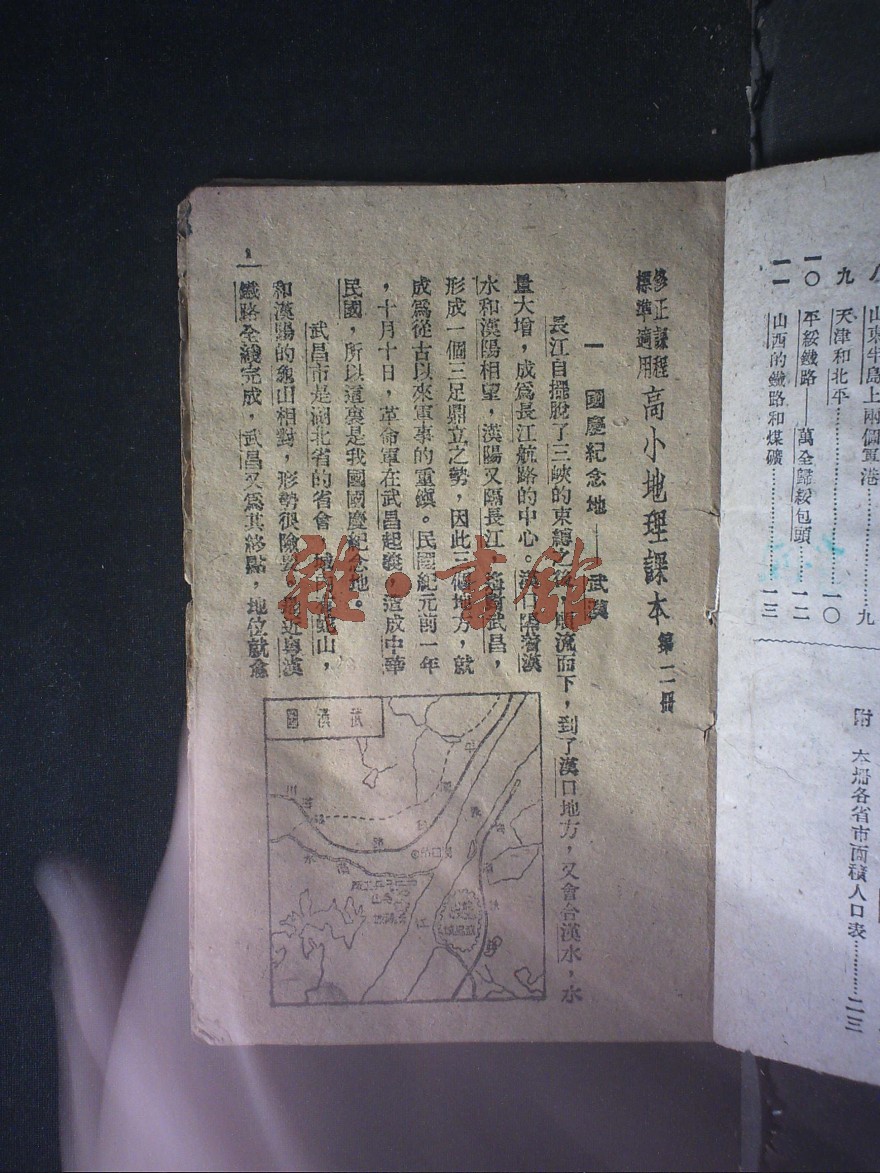 山東半島上兩個軍港……………九
九 天津和北平……………一〇
一〇 平綏鐵路——萬全歸綏包頭……一二
一一 山西的鐵路和煤礦……………一三
附 本册各省市面積人口表…………二三
修正課程標準適用 高小地理課本 第二冊
一 國慶紀念地——武漢
長江自擺脫了三峽的束縛之後,順流而下,到了漢口地方,又會合漢水,水
量大增,成爲長江航路的中心。漢口隔着漢
水和漢陽相望,漢陽又隔長江,遙對武昌,
形成一個三足鼎立之勢,因此三個地方,就
成爲從古以來軍事的重鎭。民國紀元前一年
,十月十日,革命軍在武昌起義,造成中華
民國,所以這裏是我國國慶紀念地。
武昌市是湖北省的省會,城內有蛇山,
和漢陽的龜山相對,形勢很險要。地近粵漢
鐵路全綫完成,武昌又爲其終點,地位就愈
1
武漢圖
雜·書館